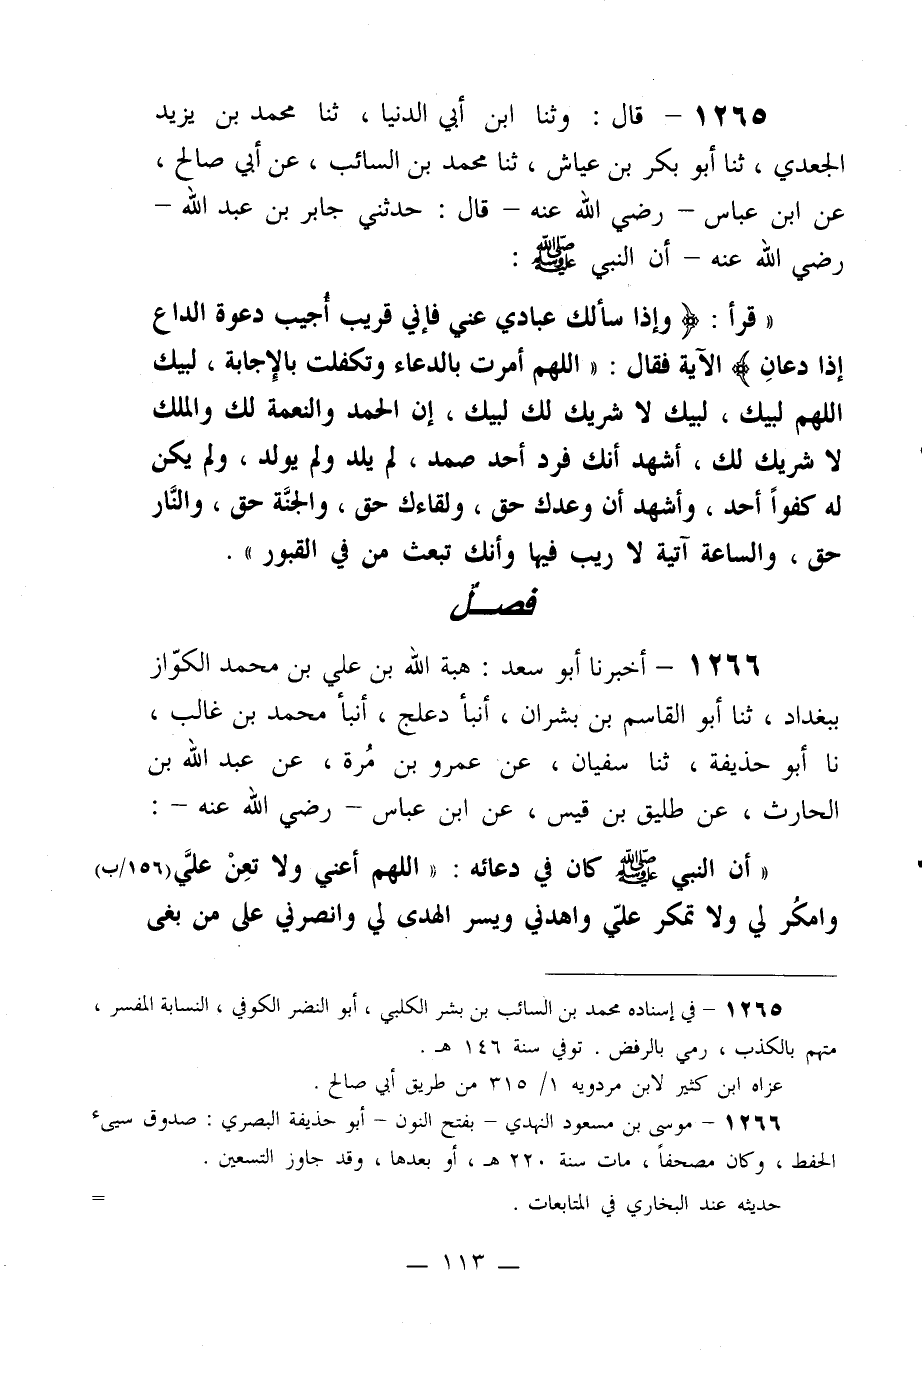 ١٢٦٥ – قال : وثنا ابن أبي الدنيا ، ثنا محمد بن يزيد
الجعدي ، ثنا أبو بكر بن عياش ، ثنا محمد بن السائب ، عن أبي صالح ،
عن ابن عباس – رضي الله عنه – قال : حدثني جابر بن عبد الله –
رضي الله عنه – أن النبي ﷺ :
« قرأ : ﴿ وإذا سألك عبادي عني فإني قريب أُجيب دعوة الداع
إذا دعانِ ﴾ الآية فقال : « اللهم أمرت بالدعاء وتكفلت بالإِجابة ، لبيك
اللهم لبيك ، لبيك لا شريك لك لبيك ، إن الحمد والنعمة لك والملك
لا شريك لك ، أشهد أنك فرد أحد صمد ، لم يلد ولم يولد ، ولم يكن
له كفواً أحد ، وأشهد أن وعدك حق ، ولقاءك حق ، والجنَّة حق ، والنَّار
حق ، والساعة آتية لا ريب فيها وأنك تبعث من في القبور » .
فصـــلٌ
١٢٦٦ – أخبرنا أبو سعد : هبة الله بن علي بن محمد الكوّاز
ببغداد ، ثنا أبو القاسم بن بشران ، أنبأ دعلج ، أنبأ محمد بن غالب ،
نا أبو حذيفة ، ثنا سفيان ، عن عمرو بن مُرة ، عن عبد الله بن
الحارث ، عن طليق بن قيس ، عن ابن عباس – رضي الله عنه – :
« أن النبي ﷺ كان في دعائه : « اللهم أعني ولا تعِنْ عليَّ (١٥٦/ب)
وامكُر لي ولا تمكر عليّ واهدني ويسر الهدى لي وانصرني على من بغى
١٢٦٥ – في إسناده محمد بن السائب بن بشر الكلبي ، أبو النضر الكوفي ، النسابة المفسر ،
متهم بالكذب ، رمي بالرفض . توفي سنة ١٤٦ هـ .
عزاه ابن كثير لابن مردويه ١/ ٣١٥ من طريق أبي صالح .
١٢٦٦ – موسى بن مسعود النهدي – بفتح النون – أبو حذيفة البصري : صدوق سيىء
الحفظ ، وكان مصحفاً ، مات سنة ٢٢٠ هـ ، أو بعدها ، وقد جاوز التسعين .
حديثه عند البخاري في المتابعات . =
— ١١٣ —